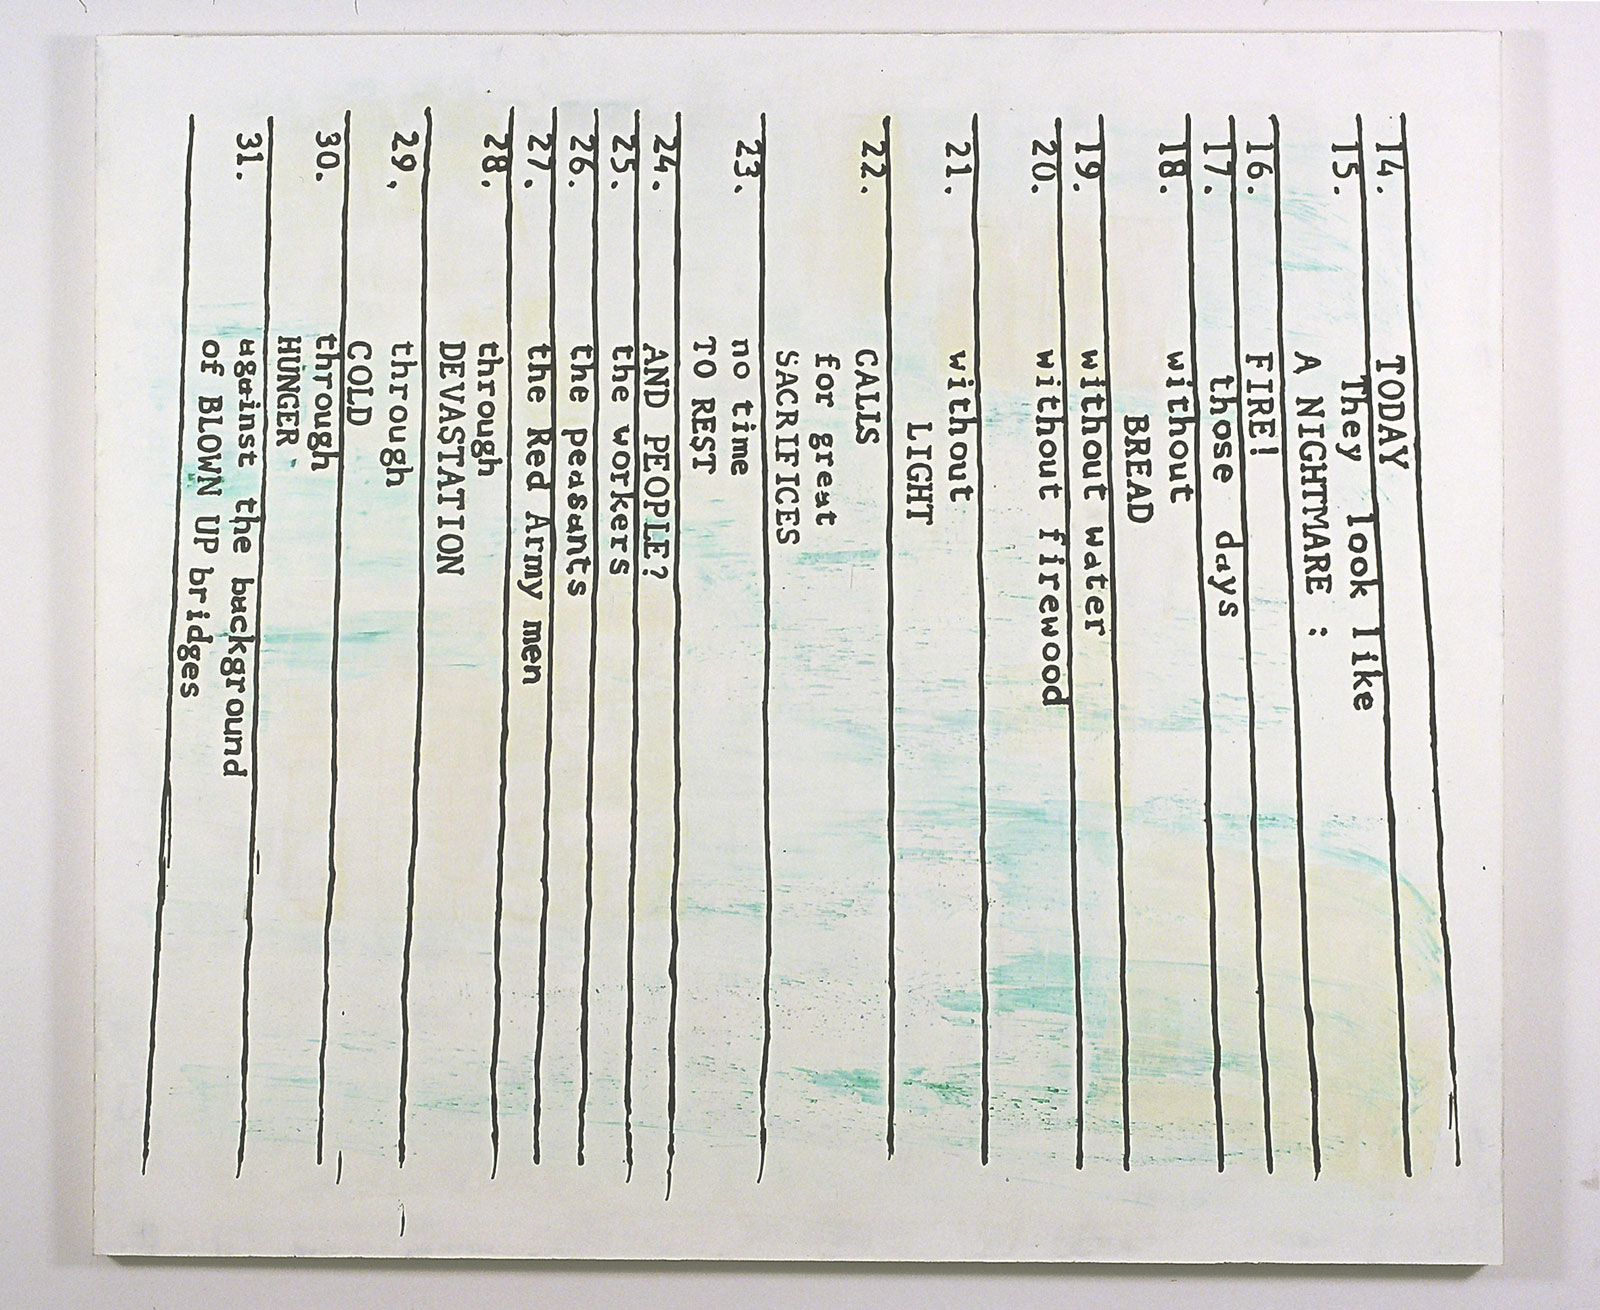 14. TODAY
15. They look like
A NIGHTMARE :
16. FIRE!
17. those days
18. without
BREAD
19. without water
20. without firewood
21. without
LIGHT
22. CALLS
for great
SACRIFICES
23. no time
TO REST
24. AND PEOPLE?
25. the workers
26. the peasants
27. the Red Army men
28. through
DEVASTATION
29, through
COLD
30. through
HUNGER
31. against the background
of BLOWN UP bridges